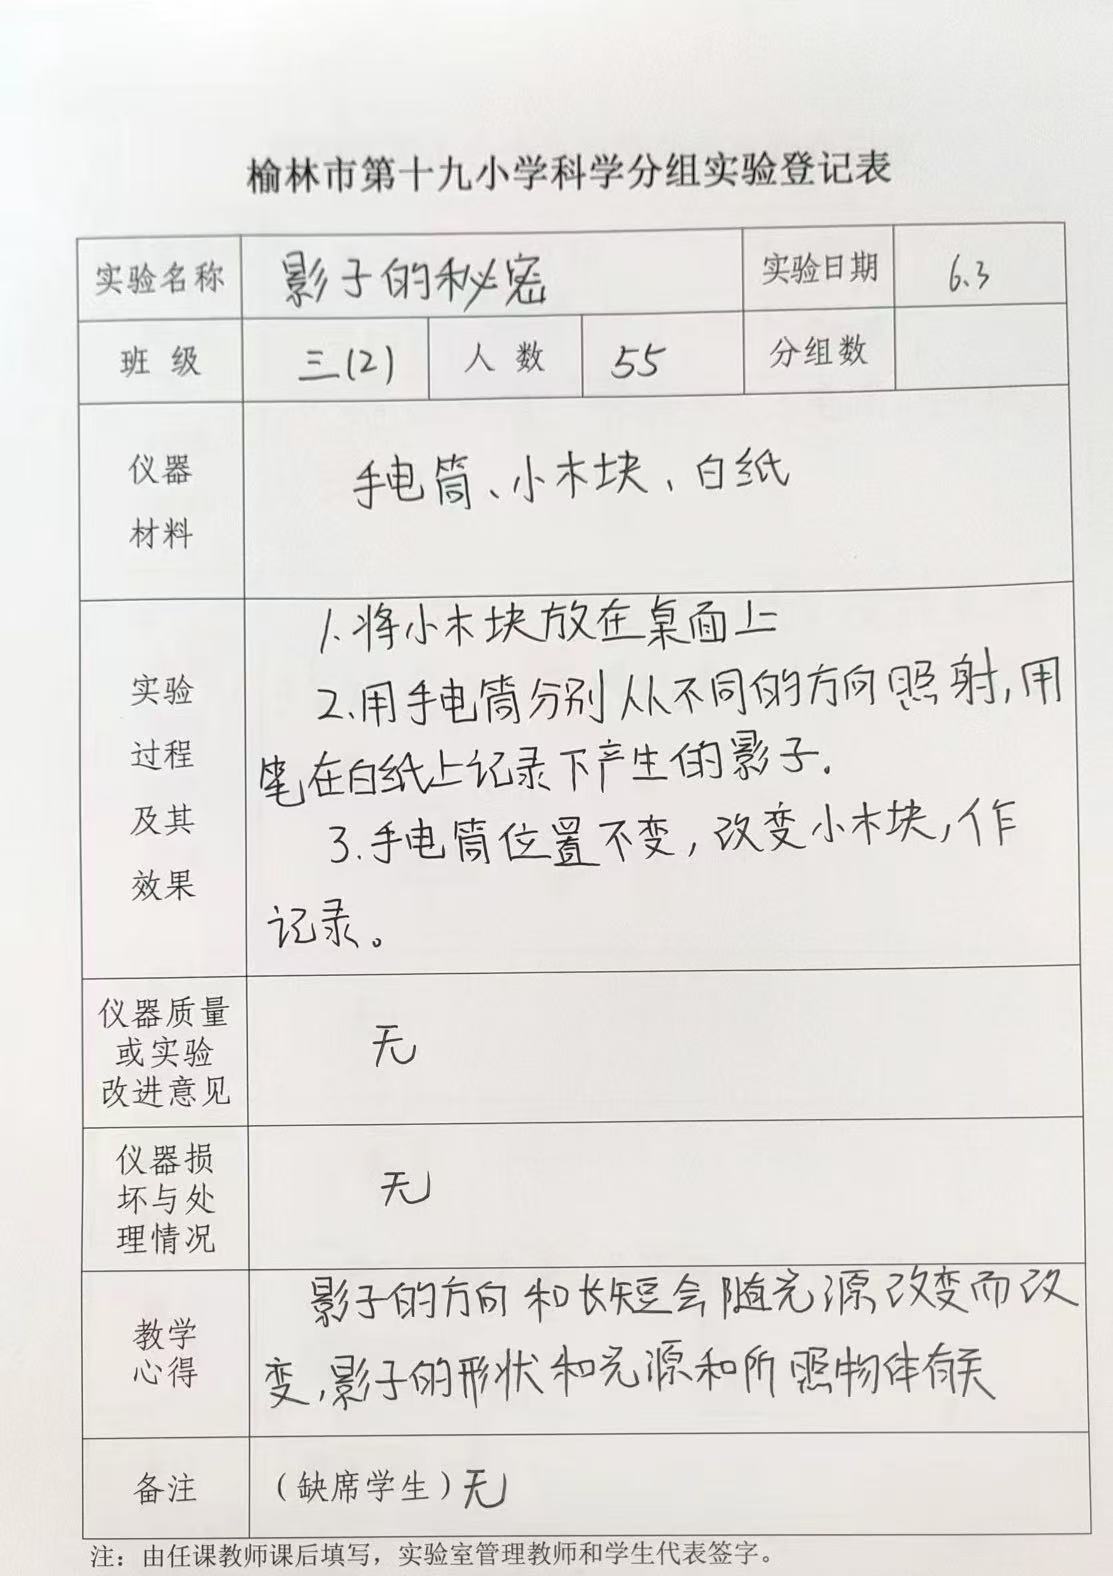 榆林市第十九小学科学分组实验登记表
实验名称 影子的秘密 实验日期 6.3
班级 三(2) 人数 55 分组数
仪器
材料
手电筒、小木块、白纸
实验
过程
及其
效果
1.将小木块放在桌面上
2.用手电筒分别从不同的方向照射,用
笔在白纸上记录下产生的影子.
3.手电筒位置不变,改变小木块,作
记录。
仪器质量
或实验
改进意见
无
仪器损
坏与处
理情况
无
教学
心得
影子的方向和长短会随光源改变而改
变,影子的形状和光源和所照物体有关
备注 (缺席学生)无
注：由任课教师课后填写，实验室管理教师和学生代表签字。